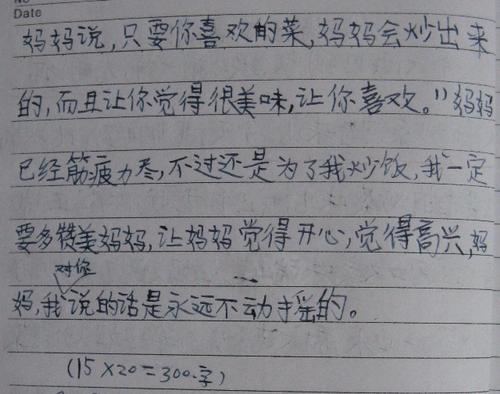 Date
妈妈说,只要你喜欢的菜,妈妈会炒出来
的,而且让你觉得很美味,让你喜欢。"妈妈
已经筋疲力尽,不过还是为了我炒饭,我一定
要多赞美妈妈,让妈妈觉得开心,觉得高兴,妈
对你
妈,我说的话是永远不动摇的。
(15×20=300字)